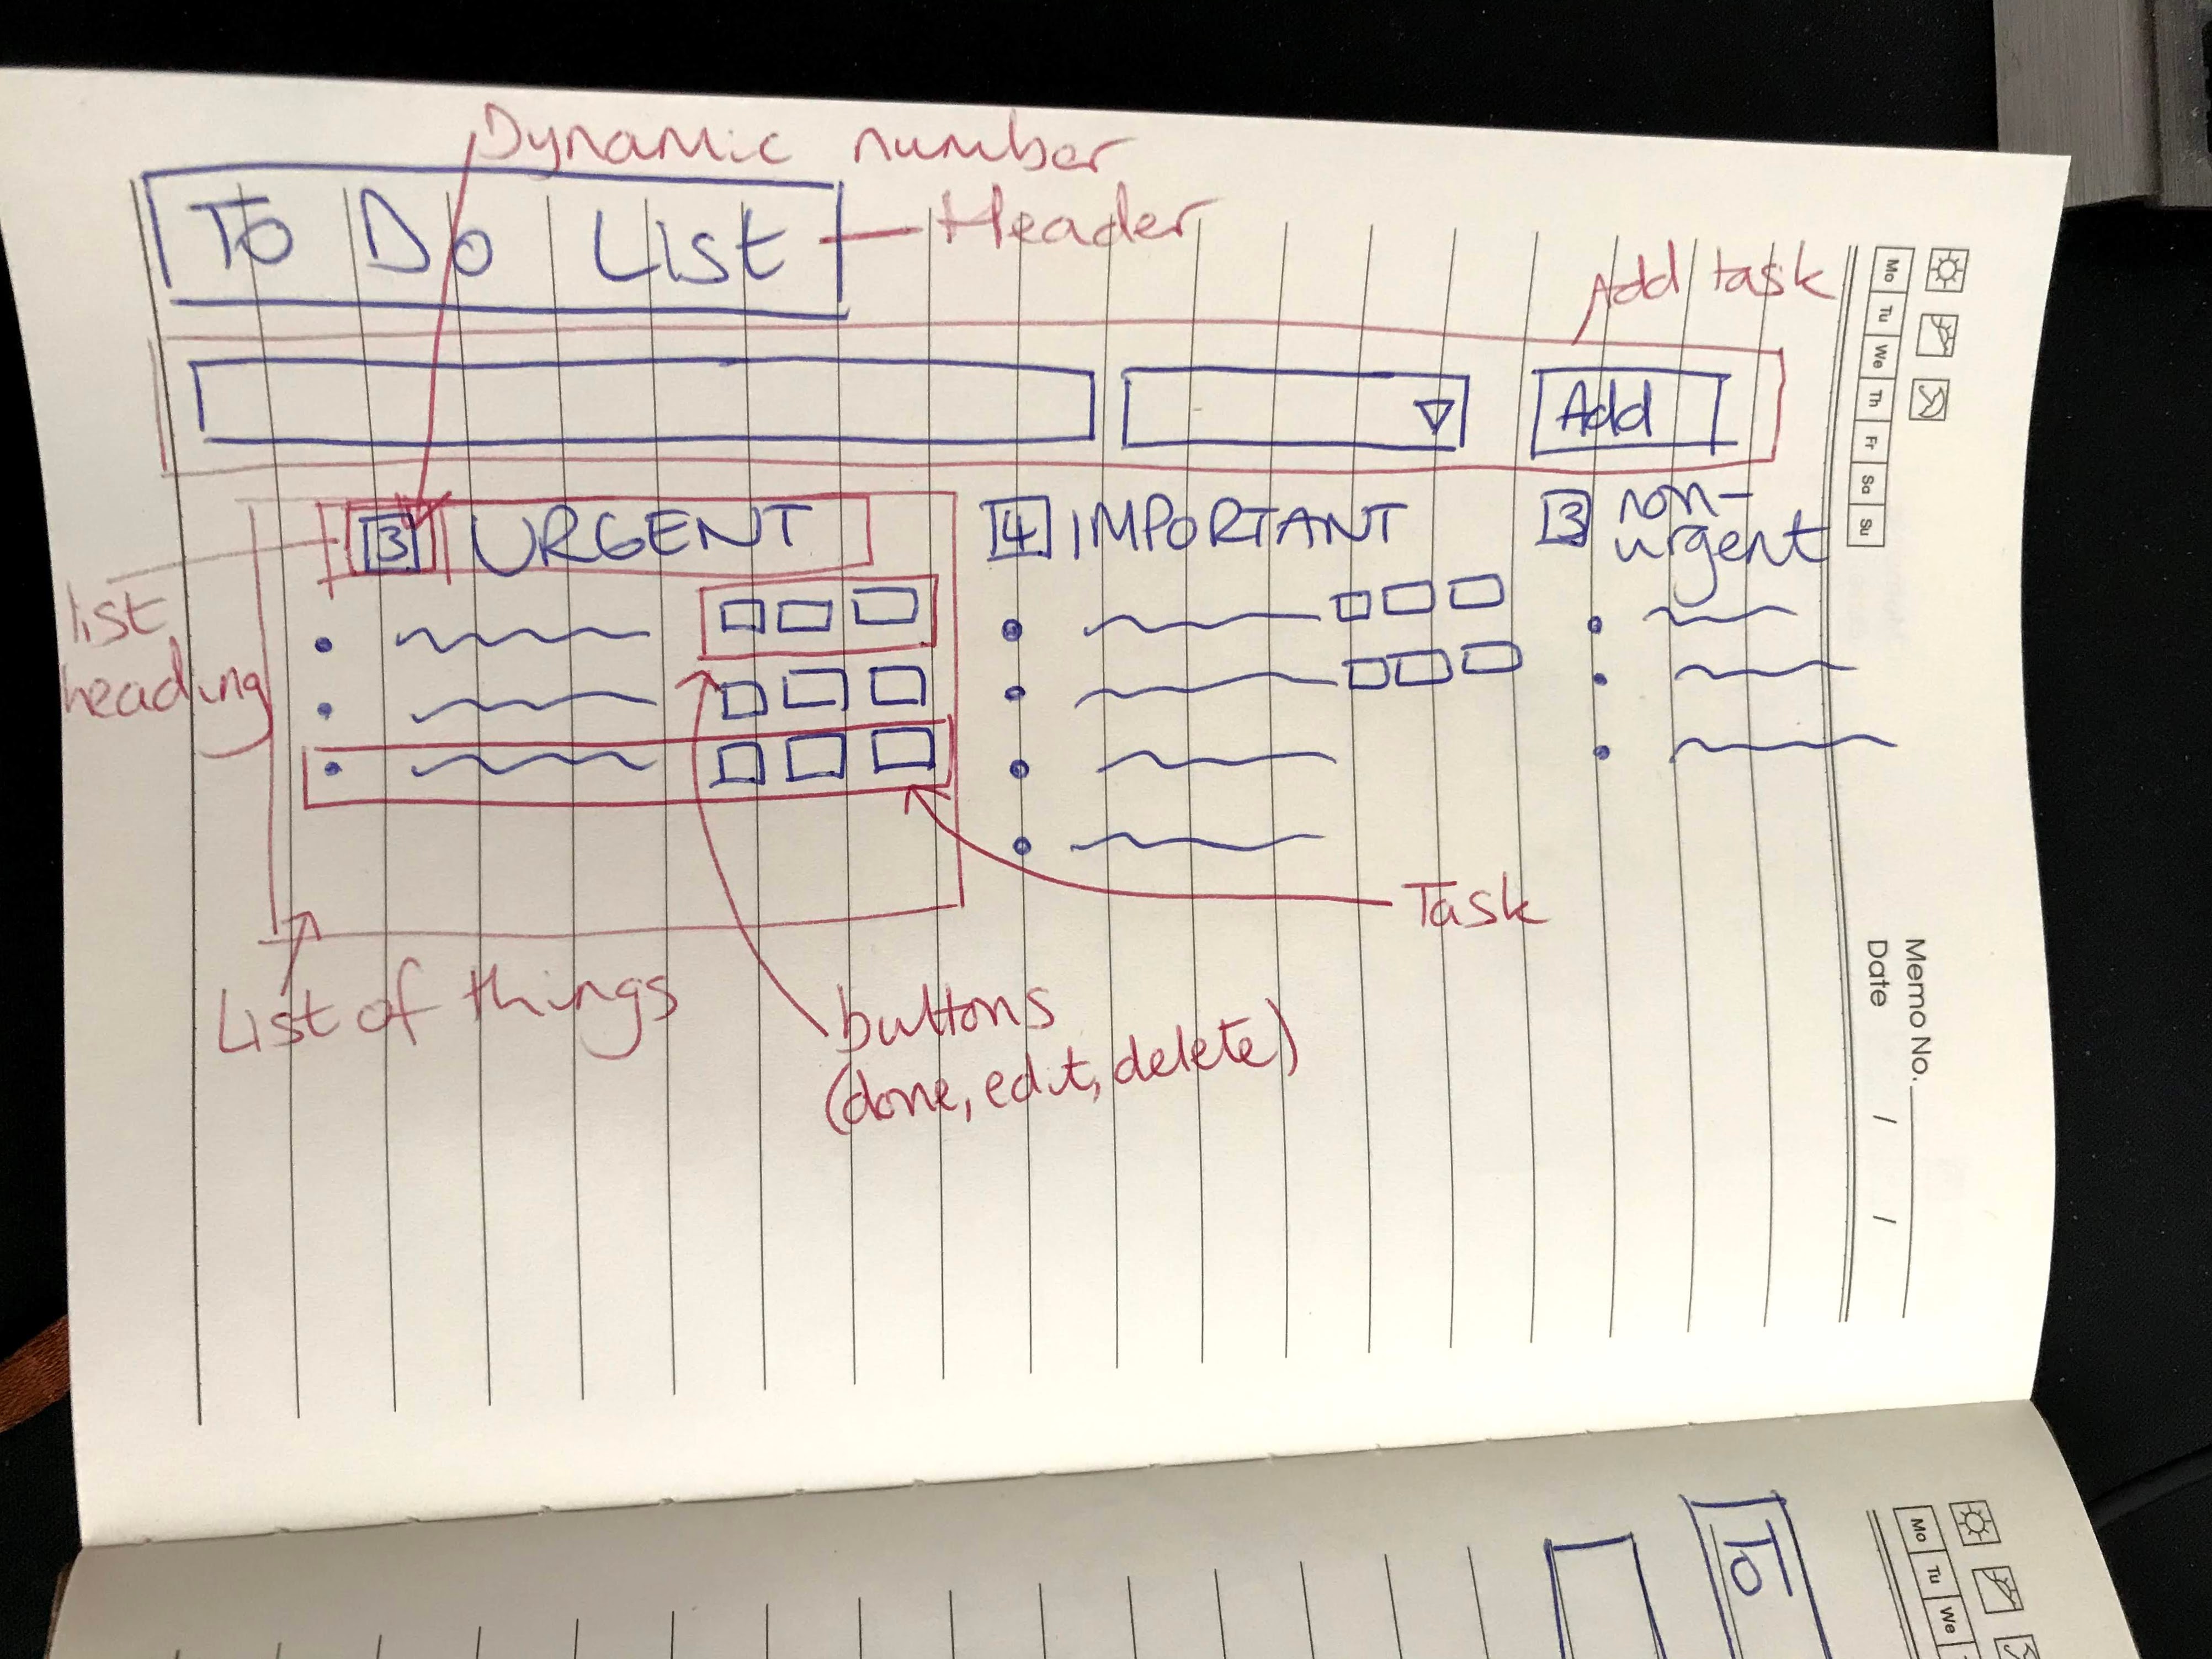 Dynamic number
To Do List
Header
Add task
Add
3 URGENT
4 IMPORTANT
3 non-
urgent
list
heading
Task
List of things
buttons
(done, edit, delete)
Mo Tu We Th Fr Sa Su
Memo No.
Date / /
To
Mo Tu We